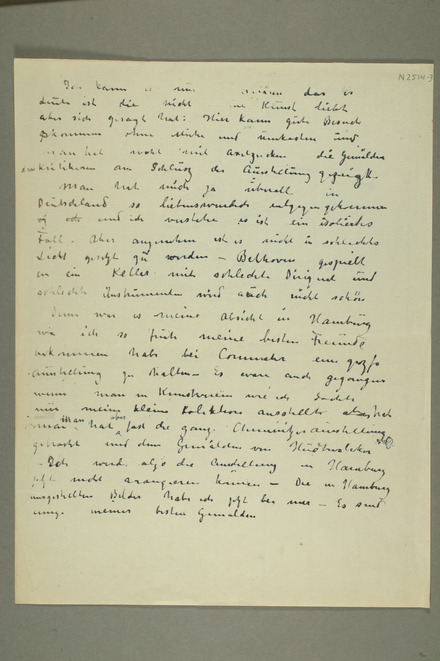 N2514-3
kann das es
Leute ist die nicht Kunst liebt
aber sich gesagt hat: Hier kann gute Besuch
ohne Mühe und umkosten und
man hat mit die Gemälden
kritikeren am Schlusz des Ausstellung
Man hat mich ja überall in
Deutschland so liebenswürdich entgegengekommen
und ich verstehe es ist ein isolierts
Fall. Aber angenehm ist es nicht in schlechte
Licht gesetzt zu worden – Bethoven gespielt
in ein Keller mit schlecht Dirigent und
schlecht Instrumenten wird auch nicht schön
Denn war es meine Absicht in Hamburg
wo ich so früh meine besten Freunde
bekommen habe bei Commeter eine grosse
ausstellung zu halten – Es wäre auch gegangen
wenn man in Kunstverein wie ich dachte
nur meine kleine Kolektion ausstellte aber
man hat fast die ganze Chemnitzerausstellung
gebracht und dem Gemälden von Hudtwalcker
– Ich werde also die Ausstellung in Hamburg
jetzt nicht arangieren können – Die in Hamburg
ausgestellten Bilder habe ich jetzt bei mir – Es sind
einige meines besten Gemälden